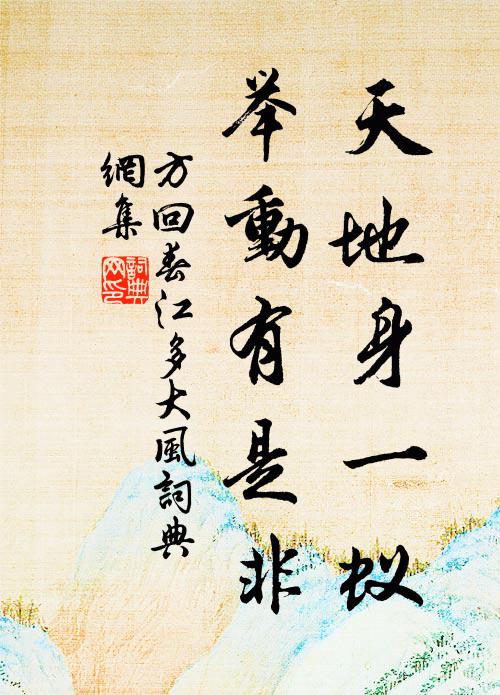 天地身一蚁
举動有是非
方回春江多大風詞典
網集
詞典網印